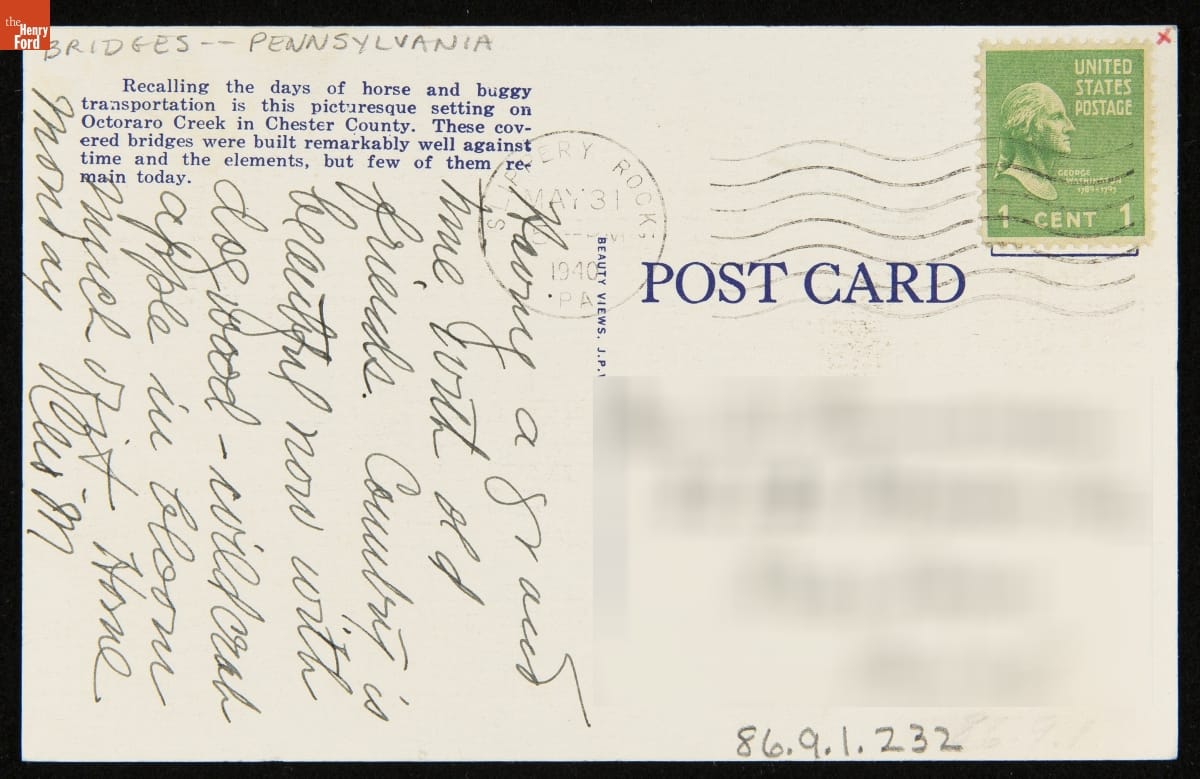 the
Henry
Ford
BRIDGES -- PENNSYLVANIA
Recalling the days of horse and buggy
transportation is this picturesque setting on
Octoraro Creek in Chester County. These cov-
ered bridges were built remarkably well against
time and the elements, but few of them re-
main today.
Having a grand
time with old
friends. Country is
beautiful now with
dogwood - wild crab
apple in bloom
Home
Monday
SLIPPERY ROCK
MAY 31
1940
PA.
UNITED
STATES
POSTAGE
GEORGE
WASHINGTON
1789-1797
1 CENT 1
BEAUTY VIEWS, J.P.
POST CARD
86.9.1.232